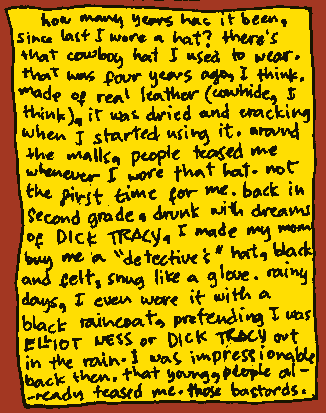 how many years has it been,
since last I wore a hat? there's
that cowboy hat I used to wear.
that was four years ago, I think.
made of real leather (cowhide, I
think), it was dried and cracking
when I started using it. around
the malls, people teased me
whenever I wore that hat. not
the first time for me. back in
second grade, drunk with dreams
of DICK TRACY, I made my mom
buy me a "detective's" hat, black
and felt, snug like a glove. rainy
days, I even wore it with a
black raincoat, pretending I was
ELLIOT NESS or DICK TRACY out
in the rain. I was impressionable
back then. that young, people al-
-ready teased me. those bastards.